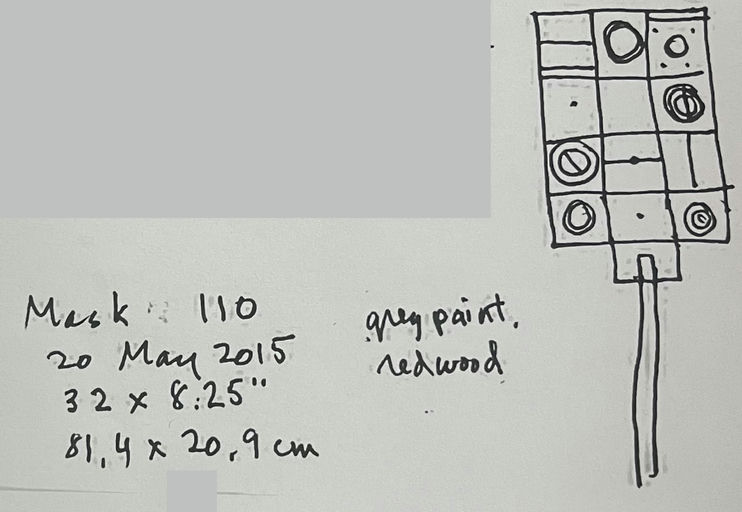 Mask 110
20 May 2015
32 x 8.25"
81,4 x 20,9 cm
grey paint.
redwood